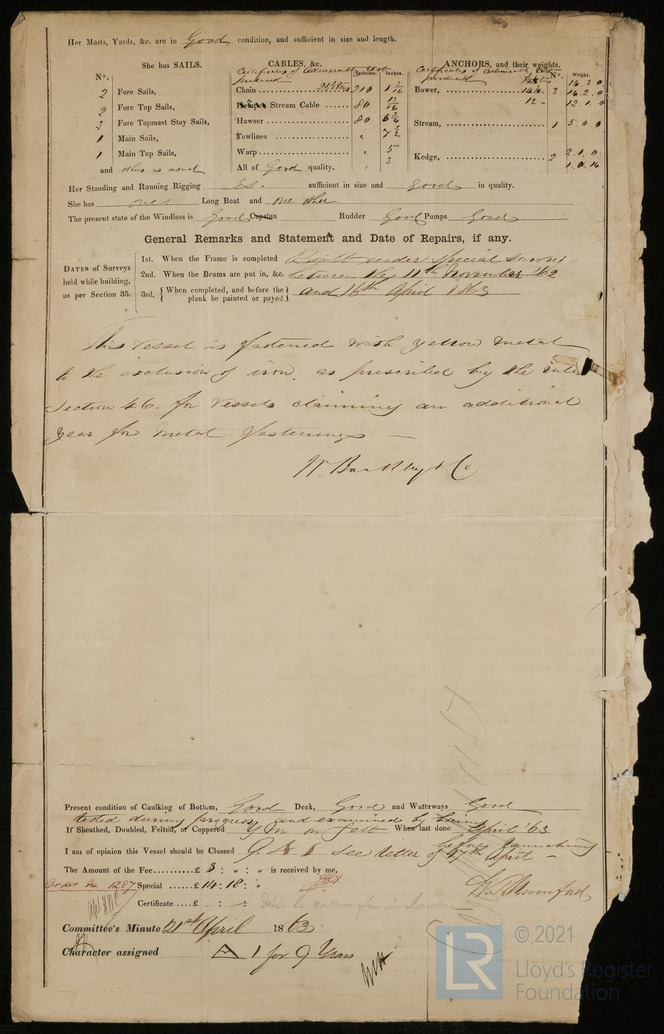 Her Masts, Yards, &c. are in Good condition, and sufficient in size and length.
She has SAILS.
N°.
2 Fore Sails,
2 Fore Top Sails,
2 Fore Topmast Stay Sails,
1 Main Sails,
1 Main Top Sails,
and others as usual
CABLES, &c.
Certificates of Admiralty test produced
Fathoms. Inches.
Chain 210 1
Stream Cable 80
Hawser 80
Towlines "
Warp " 5
" 3
All of Good quality.
ANCHORS, and their weights.
Certificates of Admiralty test produced
N°. Weight.
Bower, 3 16.3.0
16.2.0
12.1.0
Stream, 1 5.0.0
Kedge, 2 2.1.0
1.0.14
Her Standing and Running Rigging is sufficient in size and good in quality.
She has one Long Boat and one other
The present state of the Windlass is Good Capstan Rudder Good Pumps Good
General Remarks and Statement and Date of Repairs, if any.
DATES of Surveys held while building, as per Section 35.
1st. When the Frame is completed Built under Special Survey
2nd. When the Beams are put in, &c. between the 11th November '62
3rd, {When completed, and before the plank be painted or payed} and 16th April 1863
This vessel is fastened with yellow metal
to the exclusion of iron, as prescribed by the rule
Section 46. for vessels claiming an additional
year for metal fastenings —
Present condition of Caulking of Bottom, Good Deck, Good and Waterways Good
tested during progress, and examined by
If Sheathed, Doubled, Felted, or Coppered Y M on felt When last done April '63
before launching
I am of opinion this Vessel should be Classed 9 A 1 See letter of 17th April —
The Amount of the Fee £ 3 : " : " is received by me,
Order No 1287 Special £ 14 . 18 : "
Certificate £ - : - :
Committee's Minute 21st April 1863
Character assigned A 1 for 9 Years
© 2021
LR
Lloyd's Register
Foundation